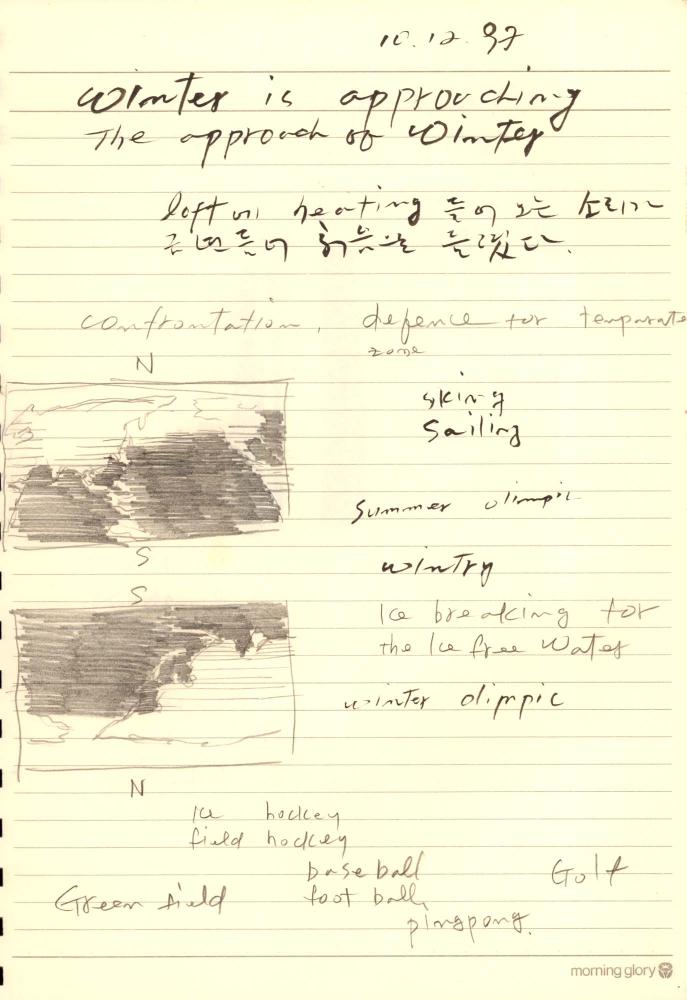 10.12.97
Winter is approuching
The approach of Winter
loft에 heating 들어오는 소리가
금년들어 처음으로 들렸다.
confrontation, defence for temparate
zone
N
skiing
Sailing
Summer olimpic
S
wintry
S
Ice breaking for
the Ice free Water
winter olimpic
N
Ice hockey
field hockey
base ball Golf
Green field foot ball,
pingpong.
morning glory